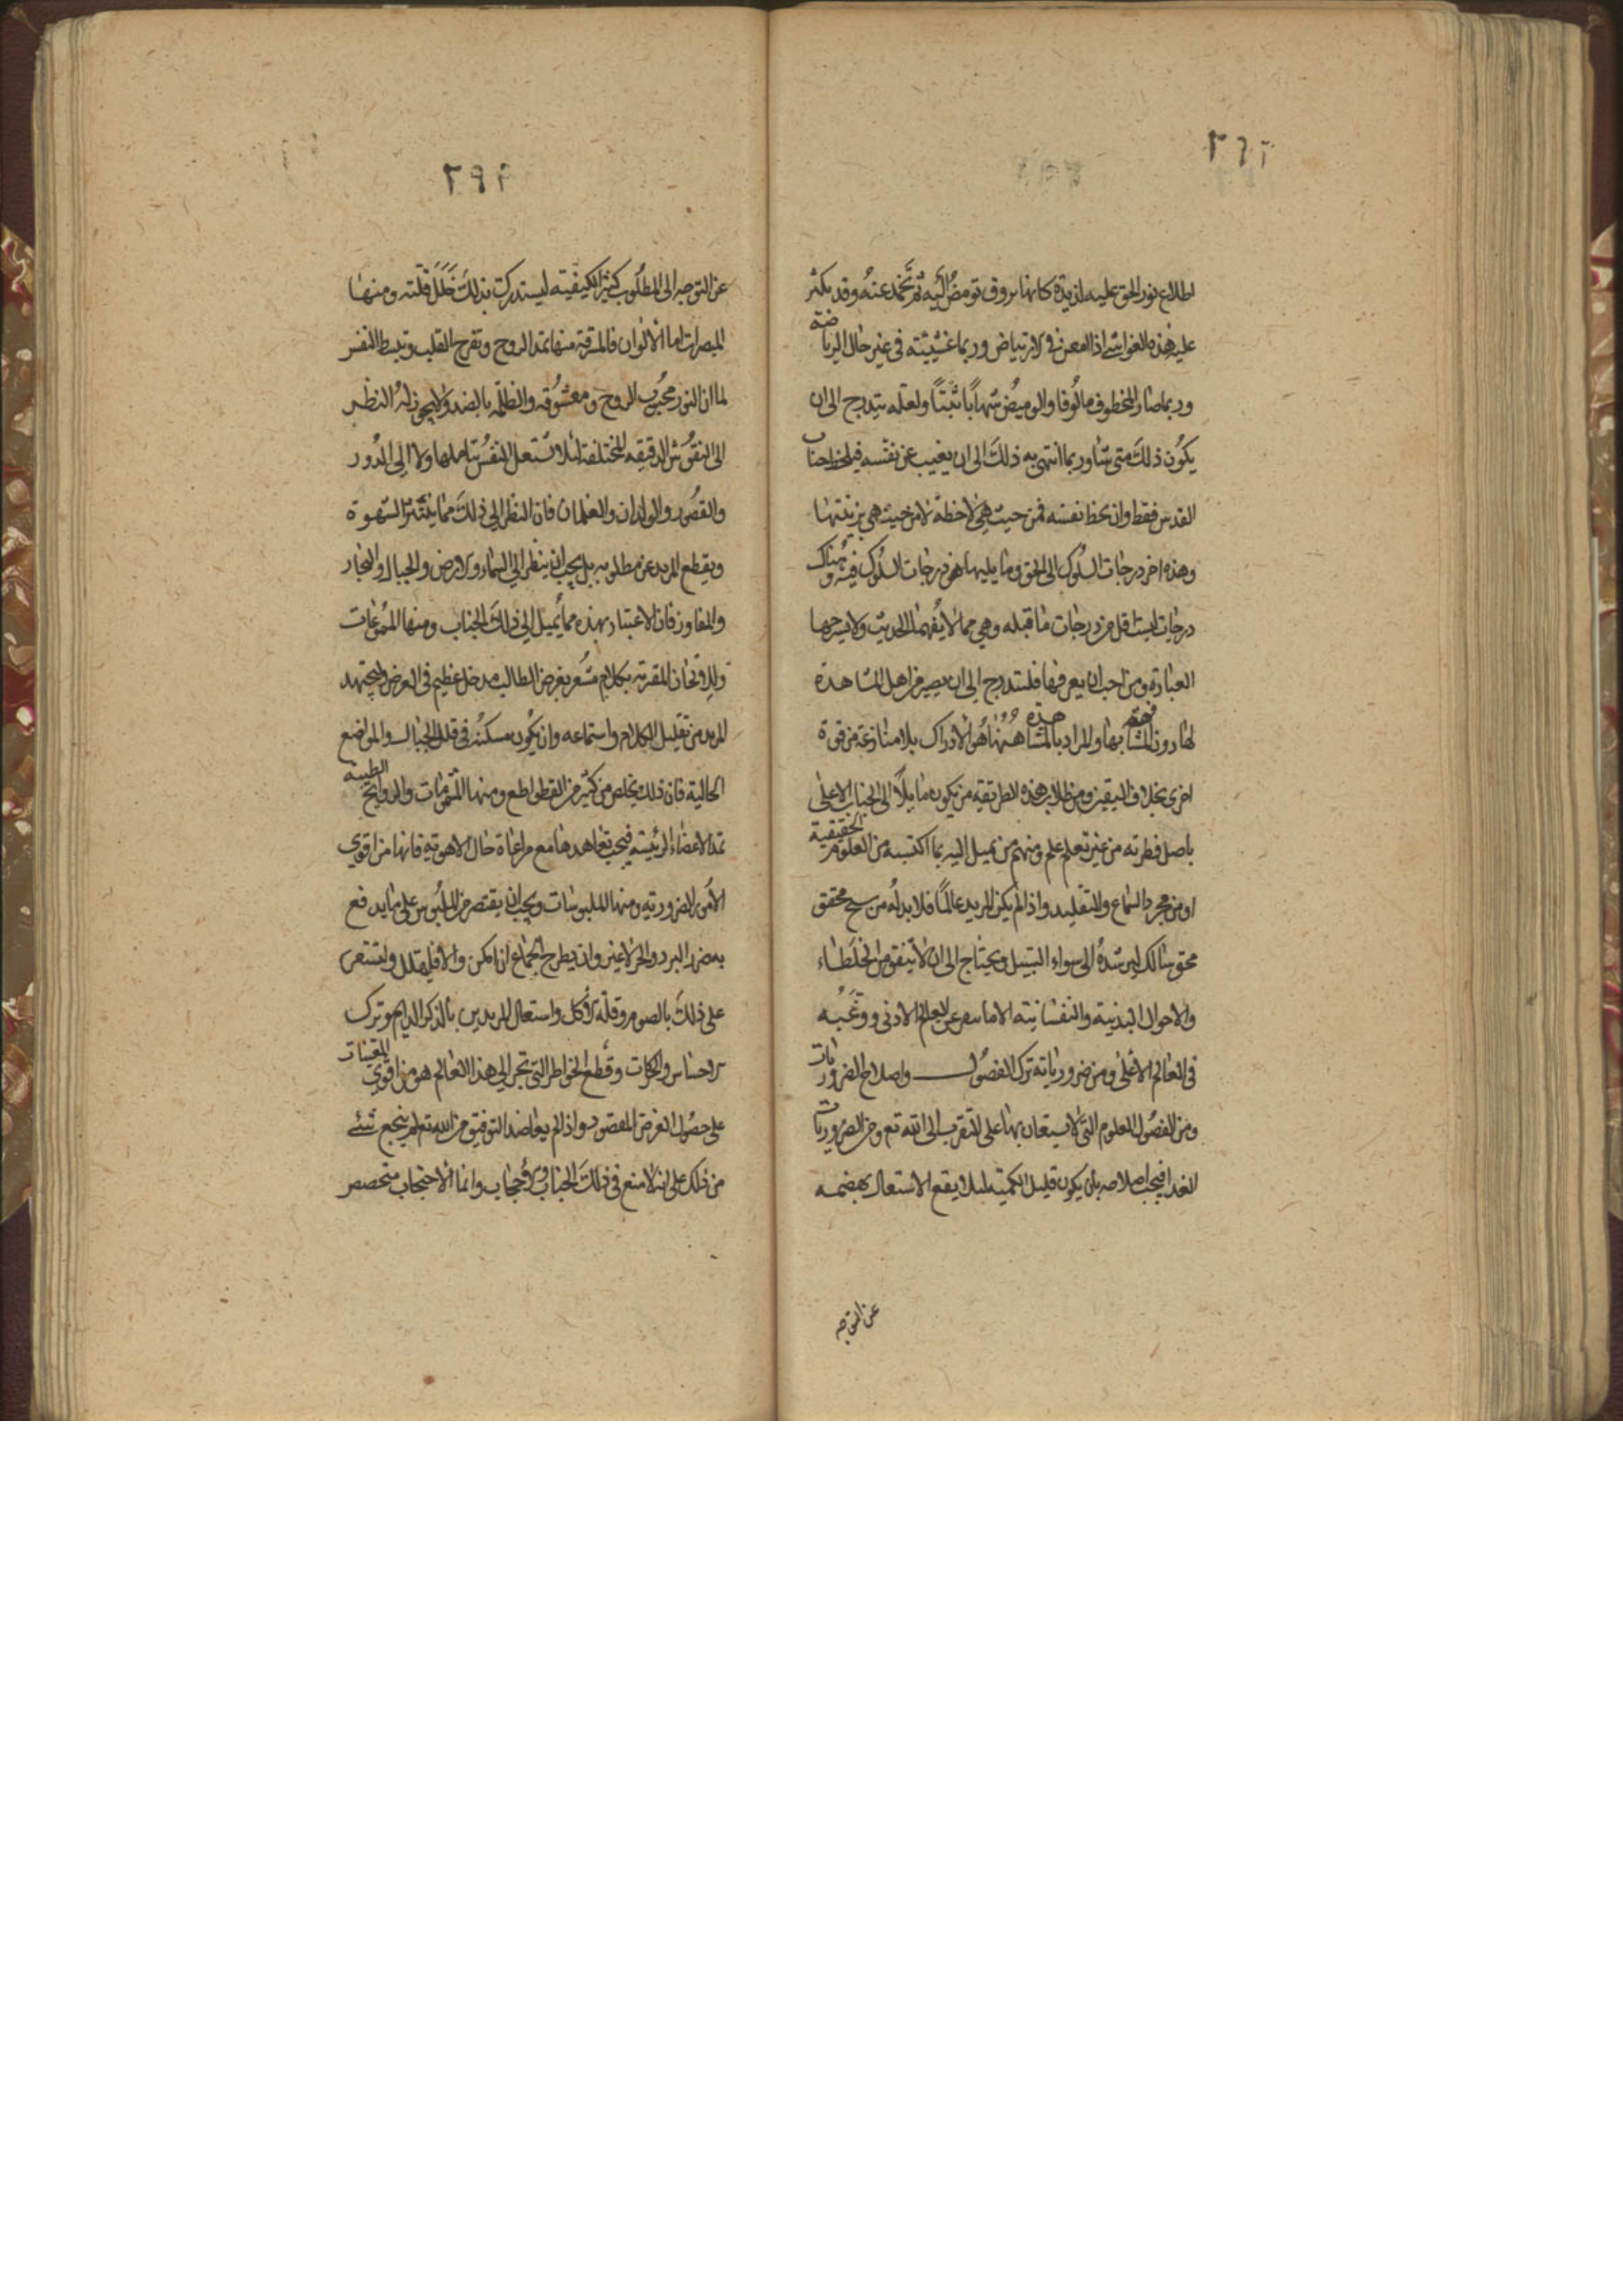 اطلاع نور الحق عليه لذيذة كانها بروق تومض اليه ثم تخمد عنه وقد يكثر
عليه هذه الغواشي اذا امعن في الارتياض وربما غشيته في غير حال الرياضة
وربما صار المخطوف مالوفا والوميض شهابا ثبتا ولعله يتدرج الى ان
يكون ذلك متى شا وربما انتهى به ذلك الى ان يغيب عن نفسه فيلحظ جناب
القدس فقط وان لحظ نفسه فمن حيث هي لاحظة لا من حيث هي بزينتها
وهذه اخر درجات السلوك الى الحق وما يليها هو درجات السلوك فيه وهناك
درجات ليست اقل من درجات ما قبله وهي مما لا يفهمها الحديث ولا يشرحها
العبارة ومن احب ان يعرفها فليتدرج الى ان يصير من اهل المشاهدة
لها دون المشافهة بها والمراد بالمشاهدة ههنا هو الادراك بلا منازعة من قوة
اخرى بخلاف اليقين ومن طلاب هذه الطريقة من يكون مايلا الى الجناب الاعلى
باصل فطرته من غير تعلم علم ومنهم من يميل اليه بما اكتسبه من العلوم الحقيقية
او من مجرد السماع والتقليد واذا لم يكن المريد عالما فلا بد له من شيخ محقق
محق سالك ليرشده الى سواء السبيل ويحتاج الى ان لا يتفق من الخلطاء
والاحوال البدنية والنفسانية الا ما يعرض عن العالم الادنى ورغبه
في العالم الاعلى ومن ضرورياته ترك الفضول واصلاح الضروريات
ومن الفضول العلوم التي لا يستعان بها على التقرب الى الله تع ومن الضروريات
الغدا فيجب اصلاحه بان يكون قليل الكمية ليلا يقع الاشتعال بهضمه
عن التوجه
عن التوجه الى المطلوب كثير الكيفية ليستدرك بذلك خلل قلته ومنها
المبصرات اما الالوان فالمشرقة منها تمد الروح وتفرح القلب وتبسط النفس
لما ان النور محبوب الروح ومعشوقه والظلمة بالضد ولا يجوز له النظر
الى النقوش الدقيقه المختلفة لئلا تشتغل النفس بتاملها ولا الى الدور
والقصور والولدان والغلمان فان النظر الى ذلك مما يثير الشهوة
ويقطع المريد عن مطلوبه بل يجب ان ينظر الى السماء والارض والجبال والبحار
والمفاوز فان الاعتبار بهذه مما يميل الى ذلك الجناب ومنها المسموعات
وللالحان المقرنة بكلام مشعر بغرض الطالب مدخل عظيم في الغرض وليجتهد
المريد من تقليل الكلام واستماعه وان يكون مسكنه في قلل الجبال والمواضع
الخالية فان ذلك يخلص من كثير من القطواطع ومنها المشمومات والروايح الطيبة
تمد الاعضاء الرئيسة فيجب تعاهدها مع مراعاة حال الاهوية فانها من اقوى
الامور الضرورية ومنها الملبوسات ويجب ان يقتصر من الملبوس على ما يدفع
به ضرر البرد والحر لا غير وان يطرح الجماع ان امكن والا فليقلل وليستعن
على ذلك بالصوم وقلة الاكل واستعال المريدين بالذكر الدايم وترك
الاحساس والحركات وقطع الخواطر التي تجر الى هذا العالم هو من اقوى المعينات
على حصول الغرض المقصود واذا لم يعاضد التوفيق من الله تع لم ينجع شئ
من ذلك على انه لا منع في ذلك الجناب ولا حجاب وانما الاحتجاب متحصص